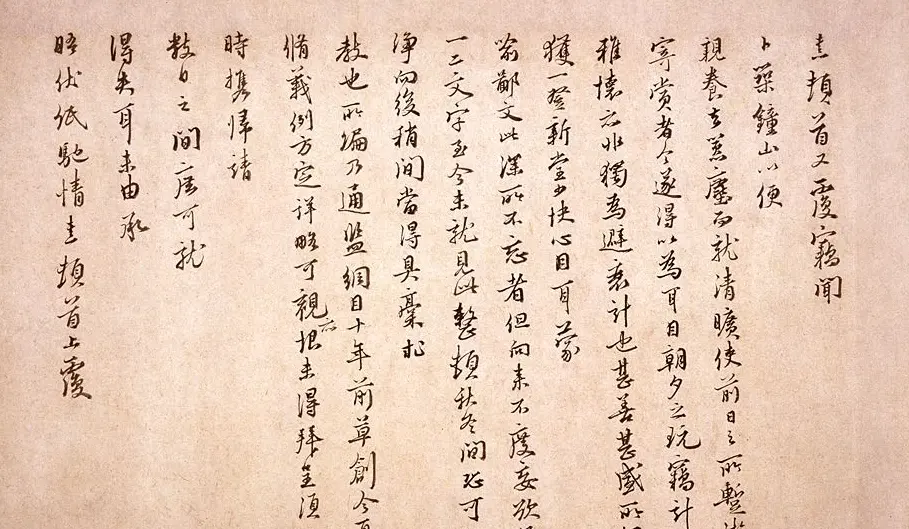 熹頓首又覆竊聞
卜築鐘山以便
親養去囂塵而就清曠使前日之所暫
寄賞者今遂得以為耳目朝夕之玩竊計
雅懷亦非獨為避衰計也甚善甚盛所
獲一登新堂少快心目耳蒙
喻鄙文此深所不忘者但向來不度妄欲
一二文字至今未就見此整頓秋冬間恐可
淨向後稍間當得具稾求
教也所編乃通鑑綱目十年前草創今
脩義例方定詳略可觀亦恨未得拜呈須
時攜歸請
數日之間庶可就
得失耳未由承
晤伏紙馳情熹頓首上覆